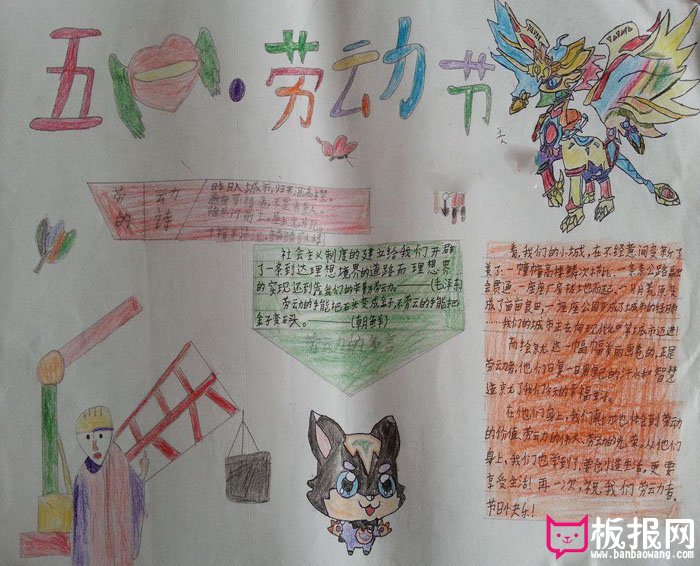 五一·劳动节
劳动
的诗
社会主义制度的建立给我们开辟
了一条到达理想境界的道路,而理想界
的实现还到靠我们的辛勤劳动。——(毛泽东)
劳动的手能把石头变成金子,不劳动的手能把
金子变石头。——(朝鲜)
看,我们的小城,在不轻意间变新了
美了:一幢幢高楼鳞次栉比,一条条公路融
会贯通,一座座厂房拔地而起,一片片荒原变
成了亩亩良田,一座座公园变成了城市的绿肺
——我们的城市正在向现代化中等城市迈进!
而绘就这一幅幅美丽画卷的,正是
劳动者,他们日复一日用自己的汗水和智慧
造就了我们今天的幸福生活。
在他们身上,我们真切地体会到劳动
的价值、劳动的伟大、劳动的光荣,从他们
身上,我们也学到了,要创造生活,更要
享受生活!再一次,祝我们劳动者,
节日快乐!
板报网
www.banbaowang.com